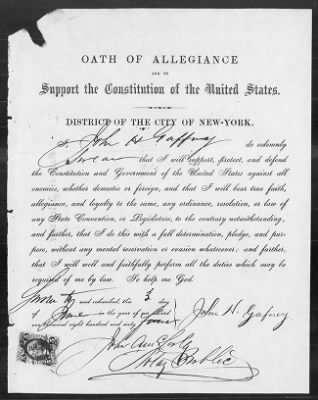 OATH OF ALLEGIANCE
AND TO
Support the Constitution of the United States.
DISTRICT OF THE CITY OF NEW-YORK.
I, John H Gaffney do solemnly
Swear that I will support, protect, and defend
the Constitution and Government of the United States against all
enemies, whether domestic or foreign, and that I will bear true faith,
allegiance, and loyalty to the same, any ordinance, resolution, or law of
any State Convention, or Legislature, to the contrary notwithstanding,
and further, that I do this with a full determination, pledge, and pur-
pose, without any mental reservation or evasion whatsoever: and further,
that I will well and faithfully perform all the duties which may be
required of me by law. So help me God.
Sworn to and subscribed, this 3 day
of June in the year of our
one thousand eight hundred and sixty four
John H. Gafney
John
Notary Public